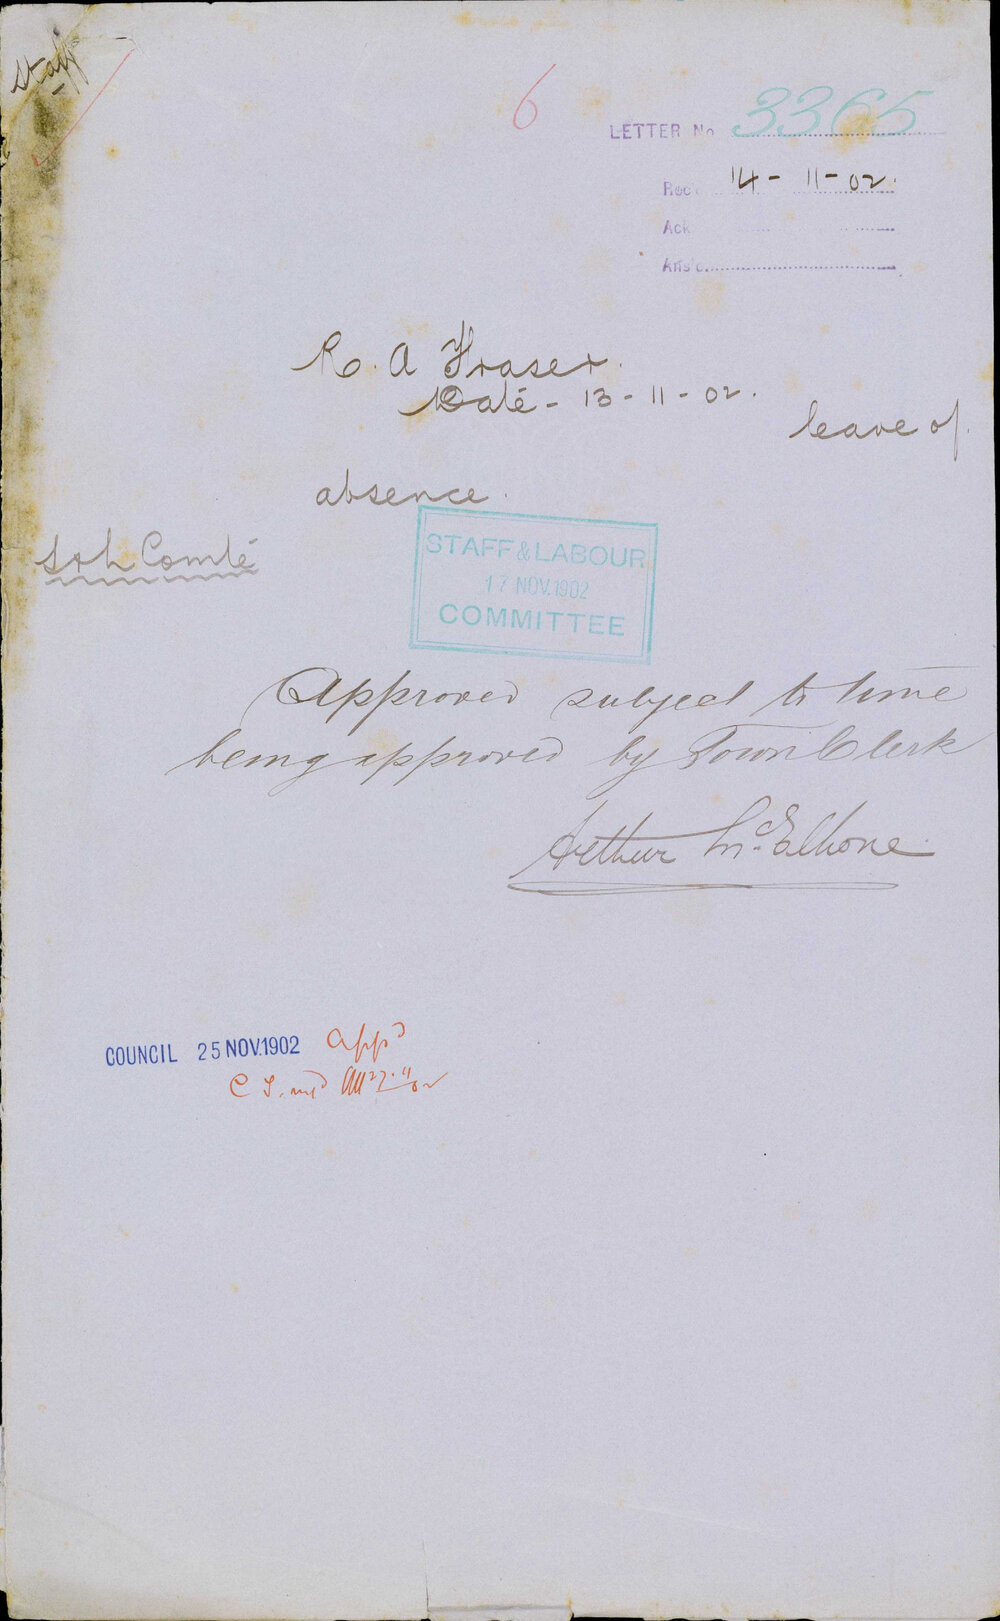 Staff
6
LETTER No 3365
Rec 14-11-02.
Ack
Ans'd.
R. A Fraser.
Date - 13-11-02.
leave of
absence.
S & L Comté
STAFF & LABOUR
17 NOV. 1902
COMMITTEE
Approved subject to time
being approved by Town Clerk
Arthur McElhone.
COUNCIL 25 NOV. 1902 appd